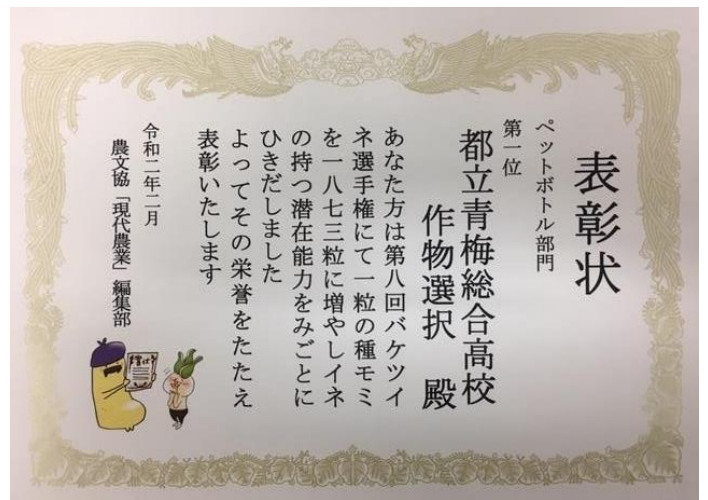 表彰状
ペットボトル部門
第一位
都立青梅総合高校
作物選択　殿
あなた方は第八回バケツイ
ネ選手権にて一粒の種モミ
を一八七三粒に増やしイネ
の持つ潜在能力をみごとに
ひきだしました
よってその栄誉をたたえ
表彰いたします
令和二年二月
農文協「現代農業」編集部